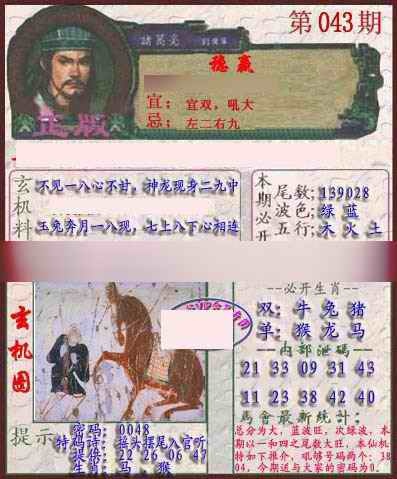 第043期
諸葛亮
稳赢
宜：宜双，吼大
忌：左二右九
正版
玄机料
不见一八心不甘，神龙现身二九中
玉兔奔月一八现，七上八下心相连
本期必开
尾数：139028
波色：绿 蓝
五行：木 火 土
必开生肖
双：牛 兔 猪
单：猴 龙 马
内部泄码
21 33 09 31 43
13 23 39 44 40
馬會最新统计：
总分为大，蓝波旺，次绿波，本
期以一和四之尾数大旺，本仙机
特如下推介，吼够号码两个：38
04，今期送与大家的密码为0。
玄机图
提示
密码：0048
特码诗：摇头摆尾入官听
提供：22 26 06 47
生肖：马、猴